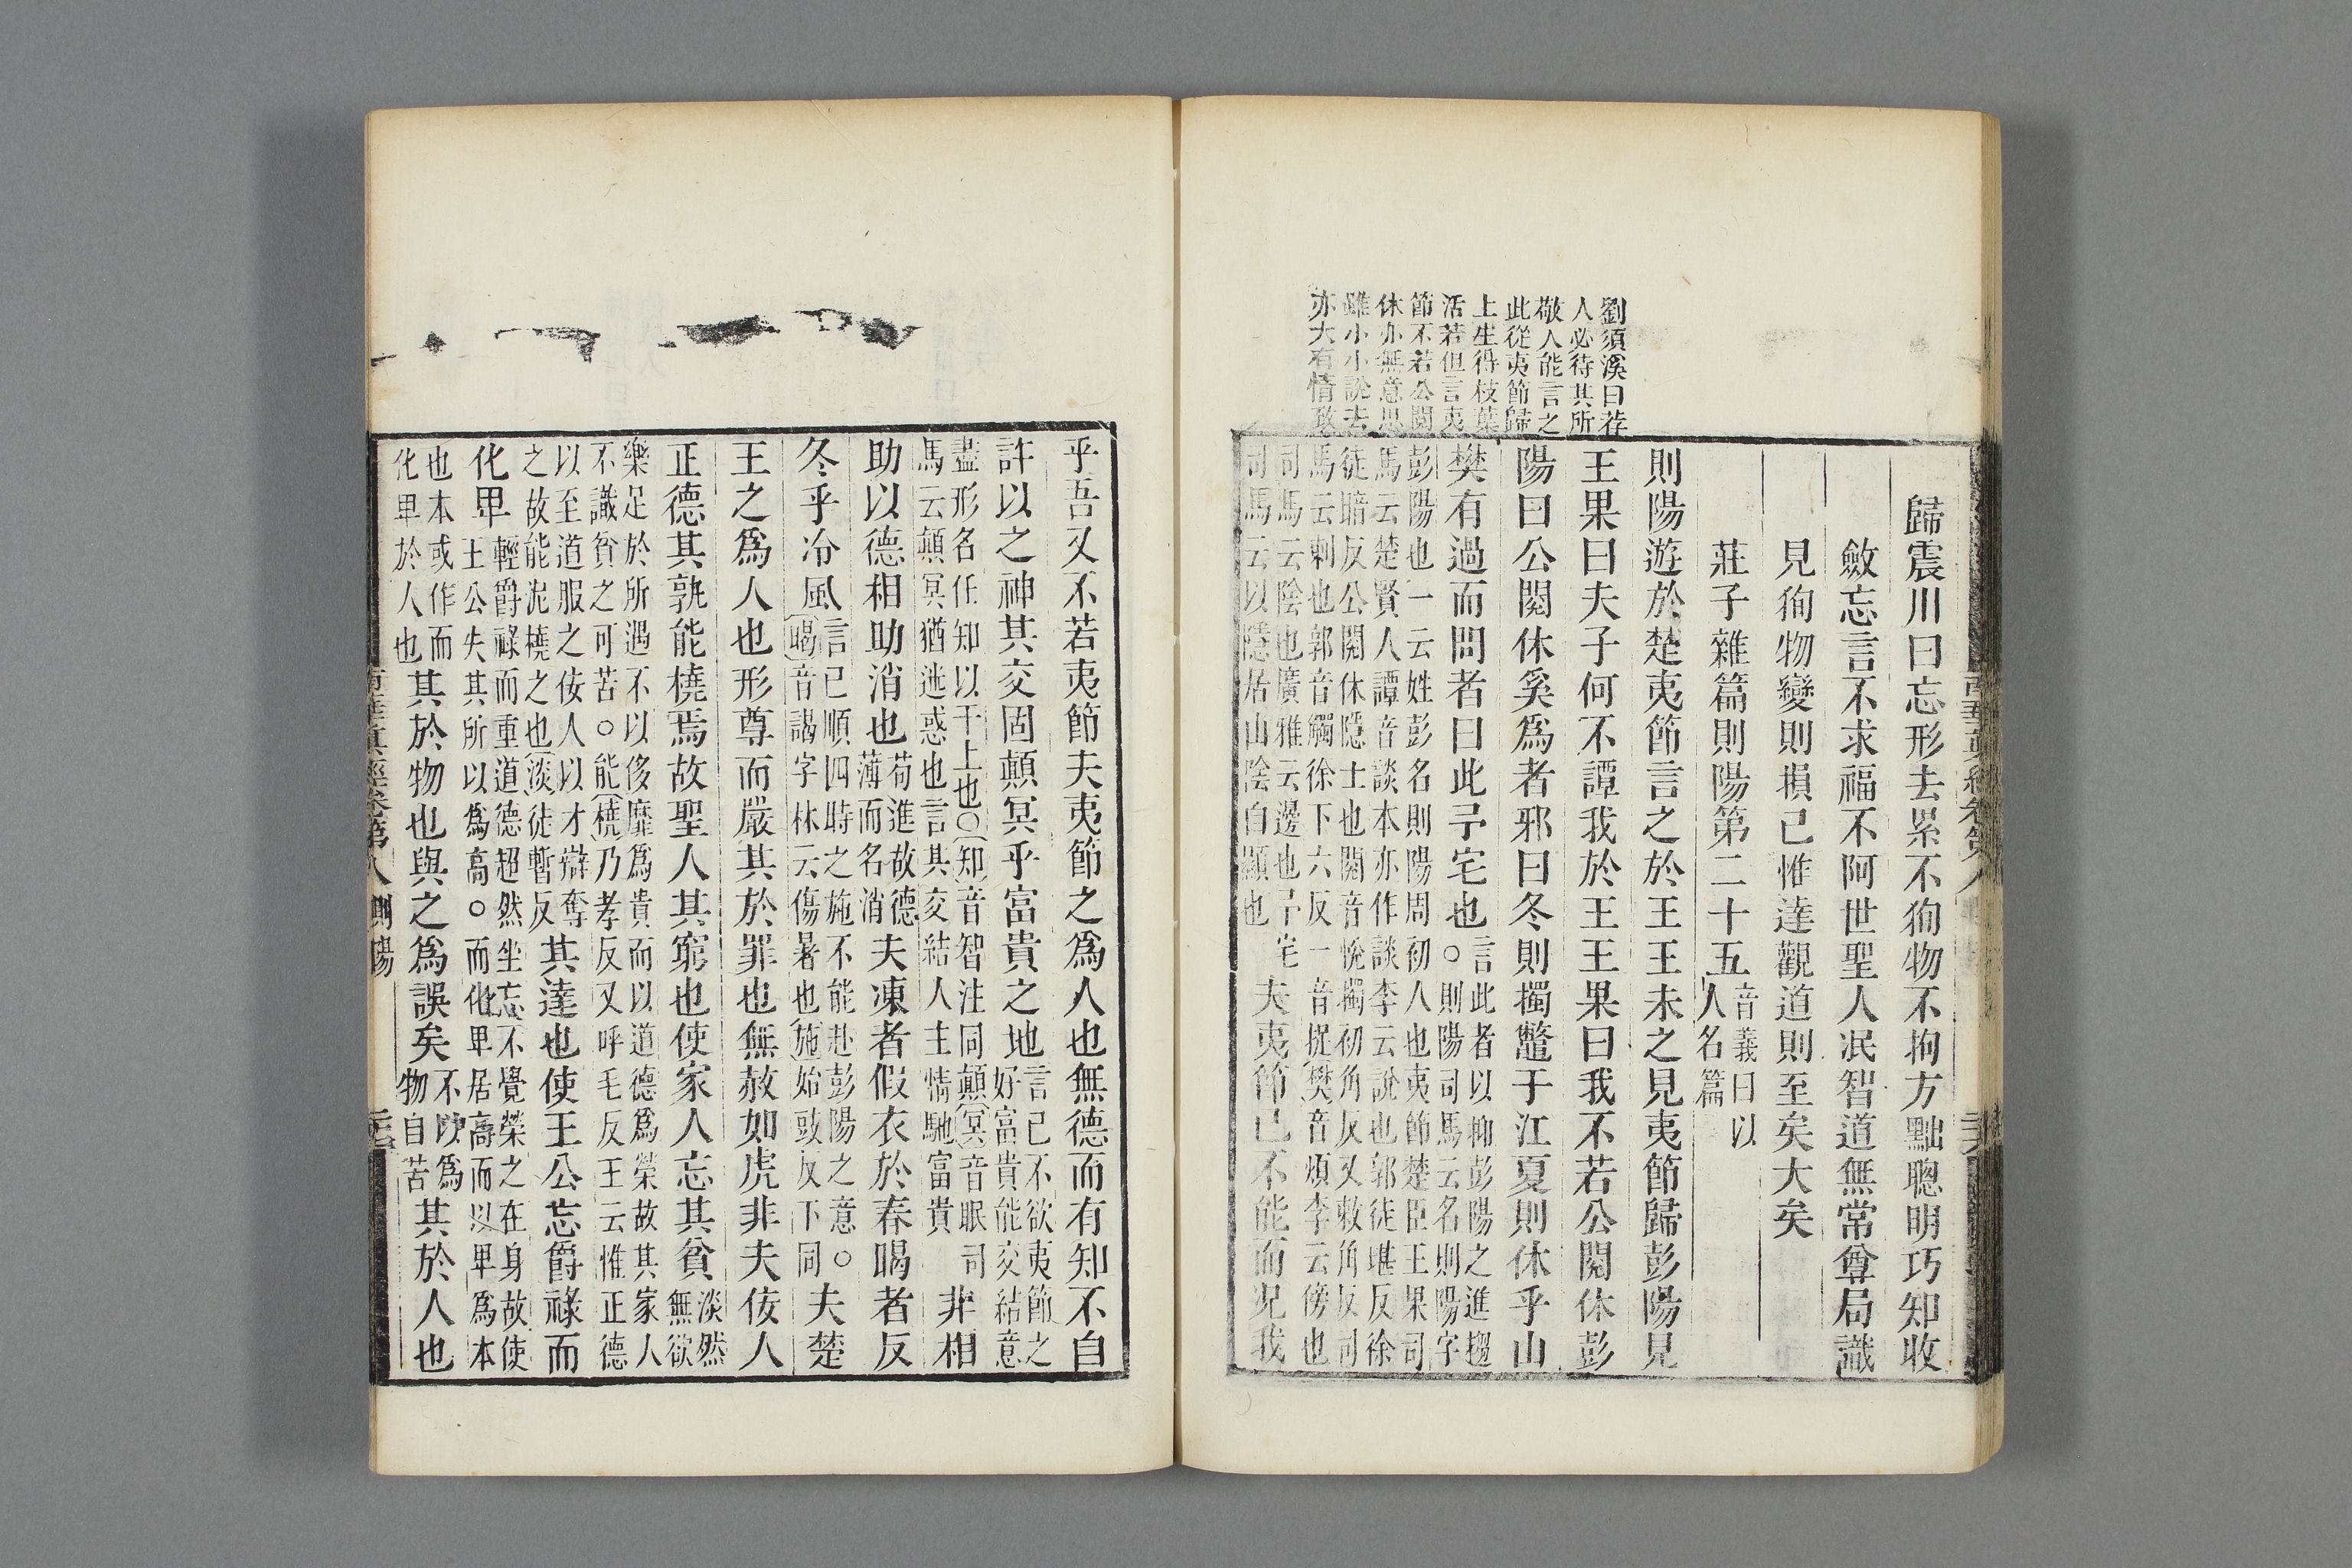 劉須溪曰荐
人必待其所
敬人能言之
此從夷節歸
上生得枝葉
活若但言夷
節不若公閱
休亦無意思
雖小小說去
亦大有情致
歸震川曰忘形去累不狥物不拘方黜聰明巧知收
斂忘言不求福不阿世聖人泯智道無常尊局識
見狥物變則損己惟達觀道則至矣大矣
莊子雜篇則陽第二十五音義曰以人名篇
則陽遊於楚夷節言之於王王未之見夷節歸彭陽見
王果曰夫子何不譚我於王王果曰我不若公閱休彭
陽曰公閱休奚為者邪曰冬則擉鼈于江夏則休乎山
樊有過而問者曰此予宅也。言此者以抑彭陽之進趨。則陽司馬云名則陽字
彭陽也一云姓彭名則陽周初人也夷節楚臣王果司
馬云楚賢人譚音談本亦作談李云說也郭徒堪反徐
徒暗反公閱休隱士也閱音悅擉初角反又敕角反司
馬云刺也郭音觸徐丁六反一音捉樊音煩李云傍也
司馬云陰也廣雅云邊也予宅
司馬云以隱居山陰自顯也夫夷節已不能而況我
乎吾又不若夷節夫夷節之為人也無德而有知不自
許以之神其交固顛冥乎富貴之地言己不欲夷節之好富貴能交結意
盡形名任知以干上也○知音智注同顛冥音眠司
馬云顛冥猶迷惑也言其交結人主情馳富貴非相
助以德相助消也苟進故德薄而名消夫凍者假衣於春暍者反
冬乎冷風言已順四時之施不能赴彭陽之意。暍音謁字林云傷暑也施始豉反下同夫楚
王之為人也形尊而嚴其於罪也無赦如虎非夫佞人
正德其孰能橈焉故聖人其窮也使家人忘其貧淡然無欲
樂足於所遇不以侈靡為貴而以道德為榮故其家人
不識貧之可苦。能橈乃孝反又呼毛反王云惟正德
以至道服之佞人以才辯奪
之故能泥橈之也淡徒暫反其達也使王公忘爵祿而
化卑輕爵祿而重道德超然坐忘不覺榮之在身故使王公失其所以為高。而化卑居高而以卑為本
也本或作而
化卑於人也其於物也與之為誤矣不以為物自苦其於人也
南華真經卷第八 則陽